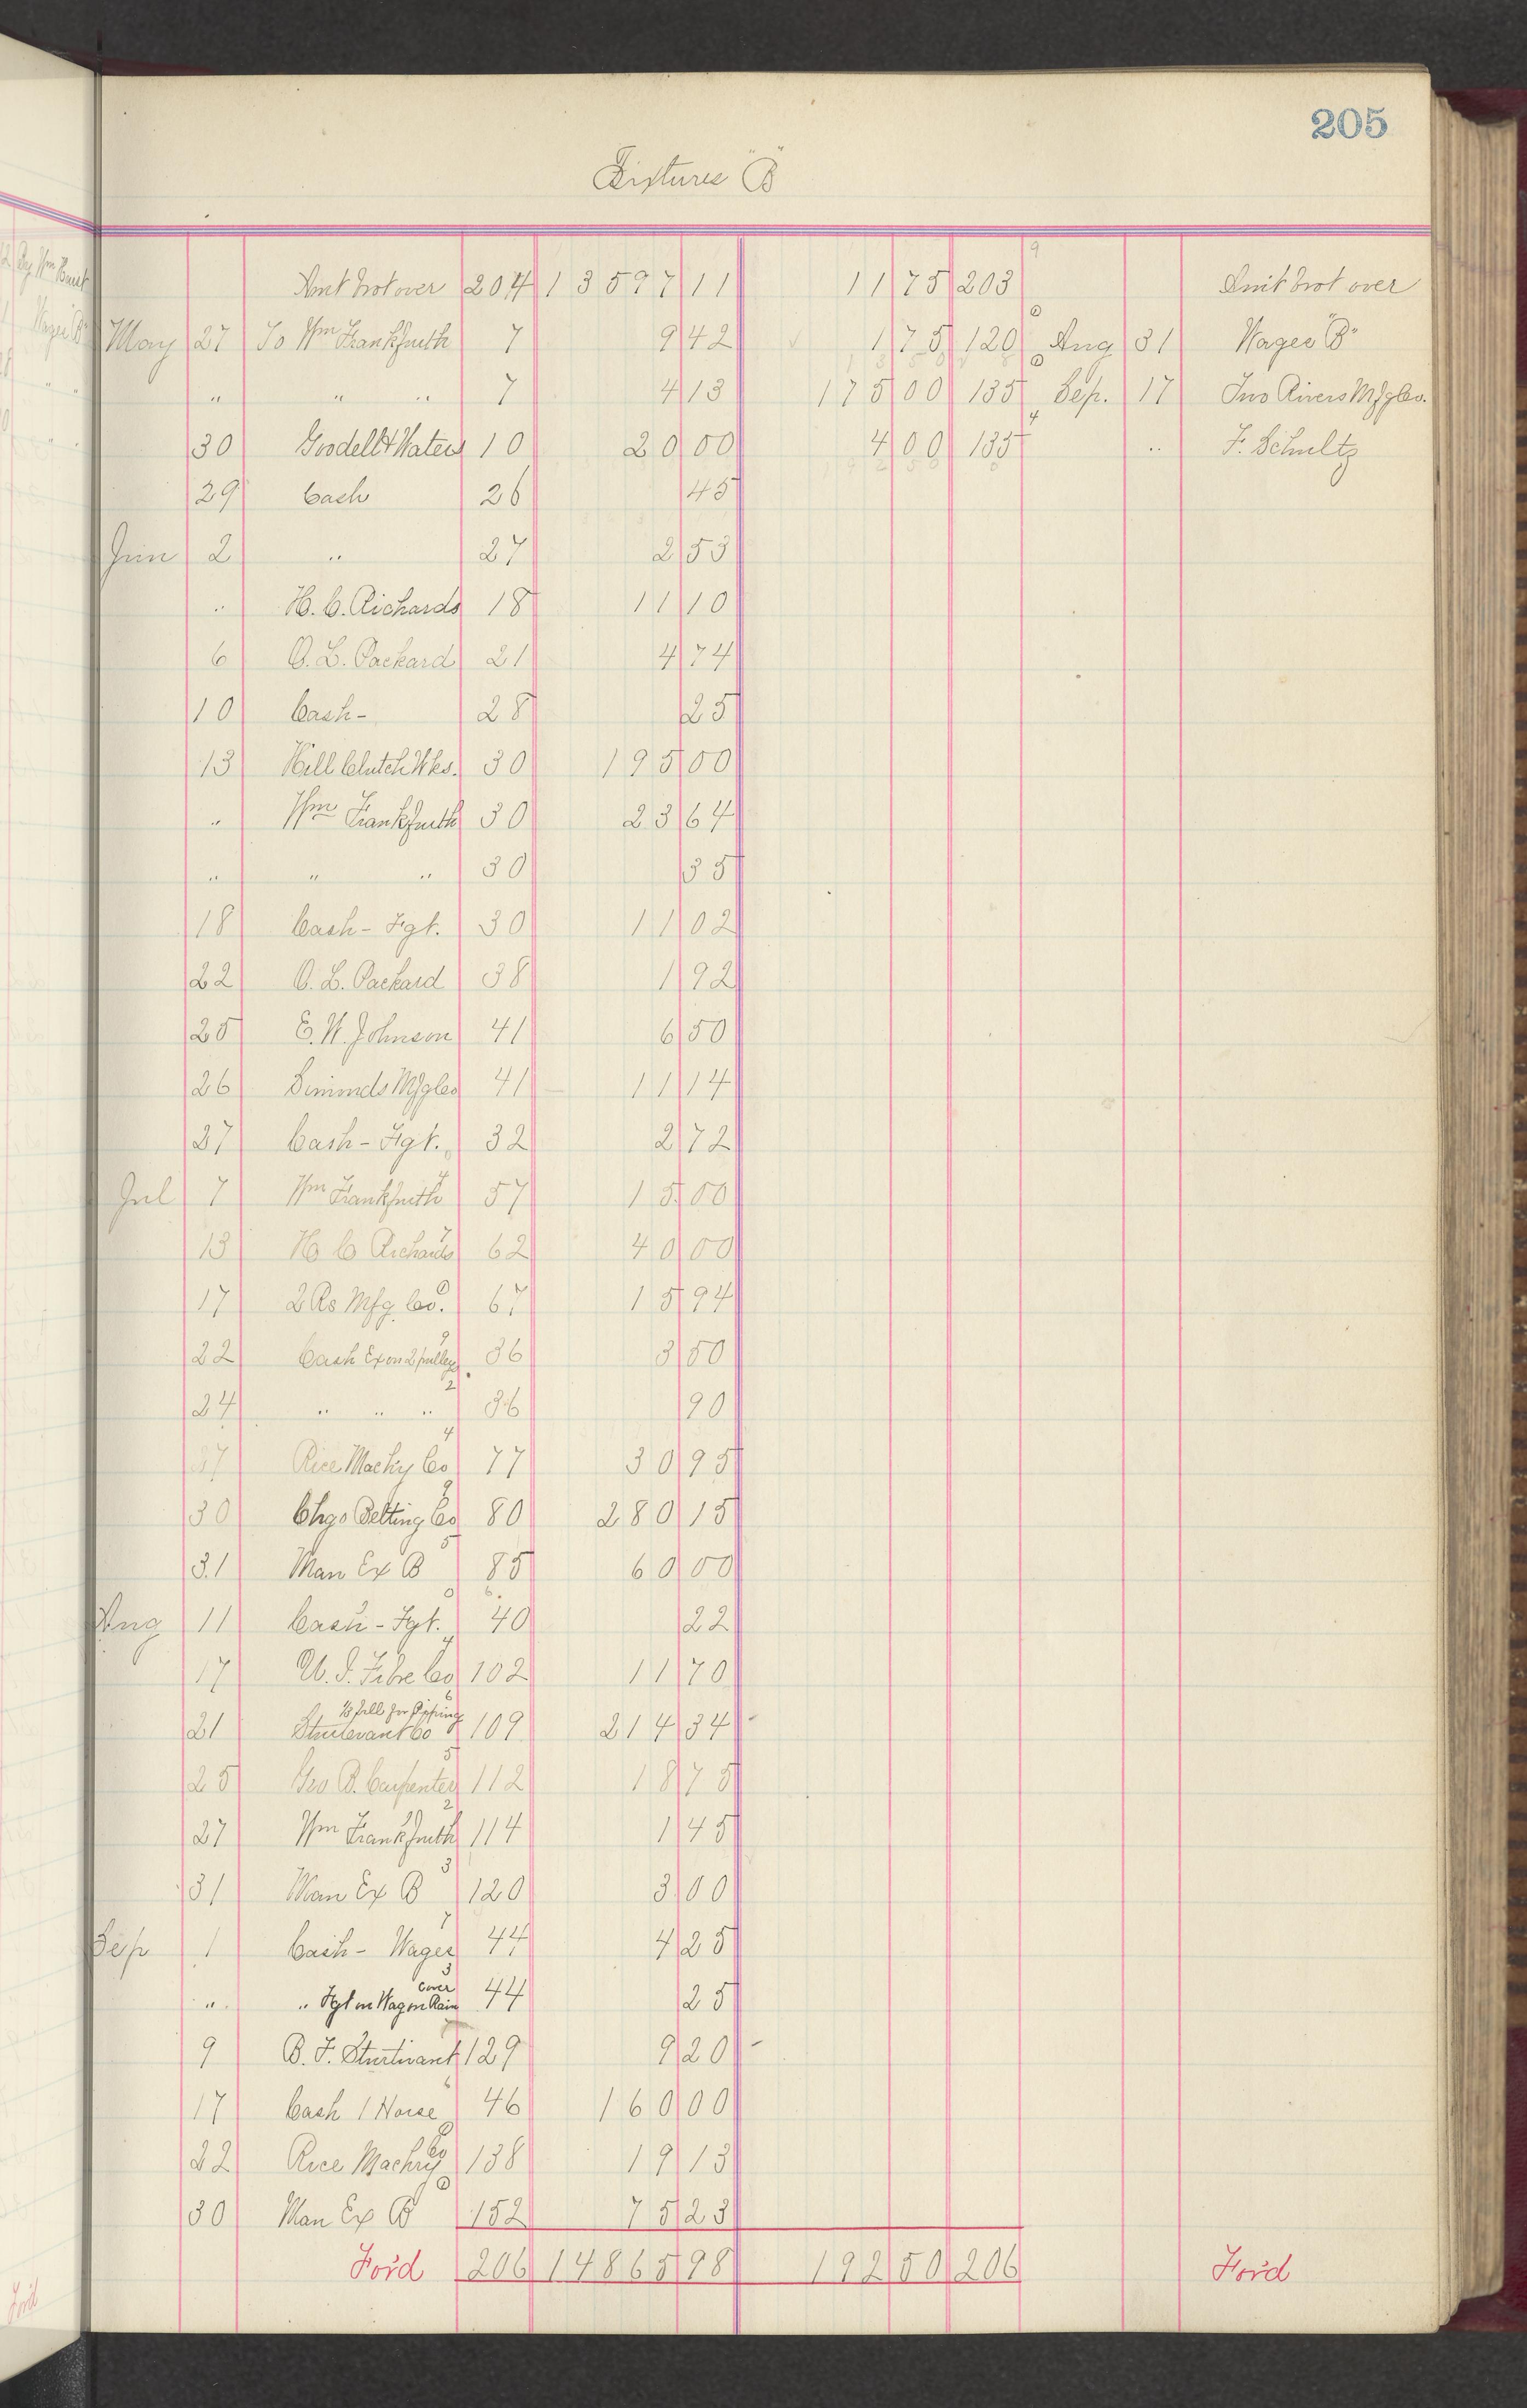 205
Fixtures "B"
Amt brot over 204 13597 11 11 75 203 Amt brot over
May 27 To Wm Frankfurth 7 9 42 1 75 120 Aug 31 Wages "B"
" " " 7 4 13 175 00 135 Sep. 17 Two Rivers Mfg Co.
30 Goodell & Waters 10 20 00 4 00 135 " F. Schultz
29 Cash 26 45
Jun 2 " 27 2 53
" H. C. Richards 18 11 10
6 O. L. Packard 21 4 74
10 Cash - 28 25
13 Hill Clutch Wks. 30 195 00
" Wm Frankfurth 30 23 64
" " " 30 35
18 Cash - Fgt. 30 11 02
22 O. L. Packard 38 1 92
25 E. W. Johnson 41 6 50
26 Simonds Mfg Co 41 11 14
27 Cash - Fgt. 32 2 72
Jul 7 Wm Frankfurth 57 15 00
13 H C Richards 62 40 00
17 2 Rs Mfg. Co. 67 15 94
22 Cash Ex on 2 pulleys 36 3 50
24 " " " 36 90
27 Rice Machy Co 77 30 95
30 Chgo Belting Co 80 280 15
31 Man Ex B 85 60 00
Aug 11 Cash - Fgt. 40 22
17 U. S. Fibre Co 102 11 70
21 Sturtevant Co 109 214 34
25 Geo B. Carpenter 112 18 75
27 Wm Frankfurth 114 1 45
31 Man Ex B 120 3 00
Sep 1 Cash - Wages 44 4 25
" " Fgt on Wagon Rain cover 44 25
9 B. F. Sturtivant 129 9 20
17 Cash 1 Horse 46 160 00
22 Rice Machry Co 138 19 13
30 Man Ex B 152 75 23
For'd 206 14865 98 192 50 206 For'd